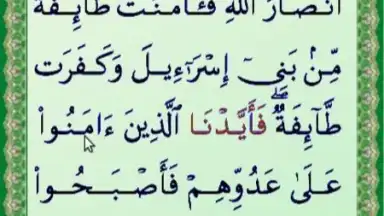 أَنصَارُ اللَّهِ فَـَٔامَنَت طَّآئِفَةٌ
مِّنۢ بَنِىٓ إِسْرَٰٓءِيلَ وَكَفَرَت
طَّآئِفَةٌۖ فَأَيَّدْنَا ٱلَّذِينَ ءَامَنُوا۟
عَلَىٰ عَدُوِّهِمْ فَأَصْبَحُوا۟